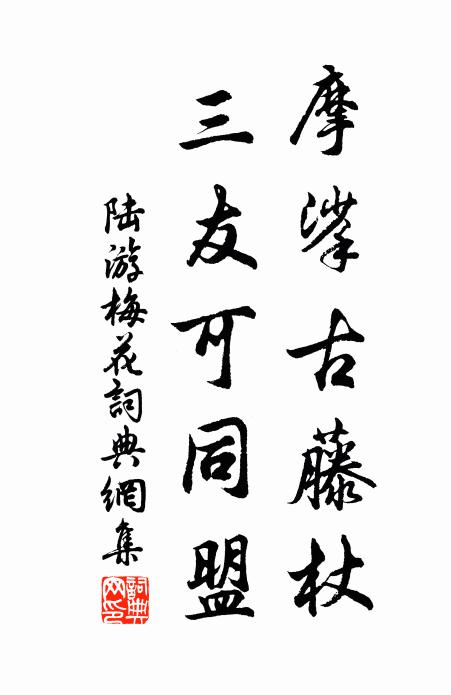 摩挲古藤杖
三友可同盟
陆游梅花詞典網集
詞典網印